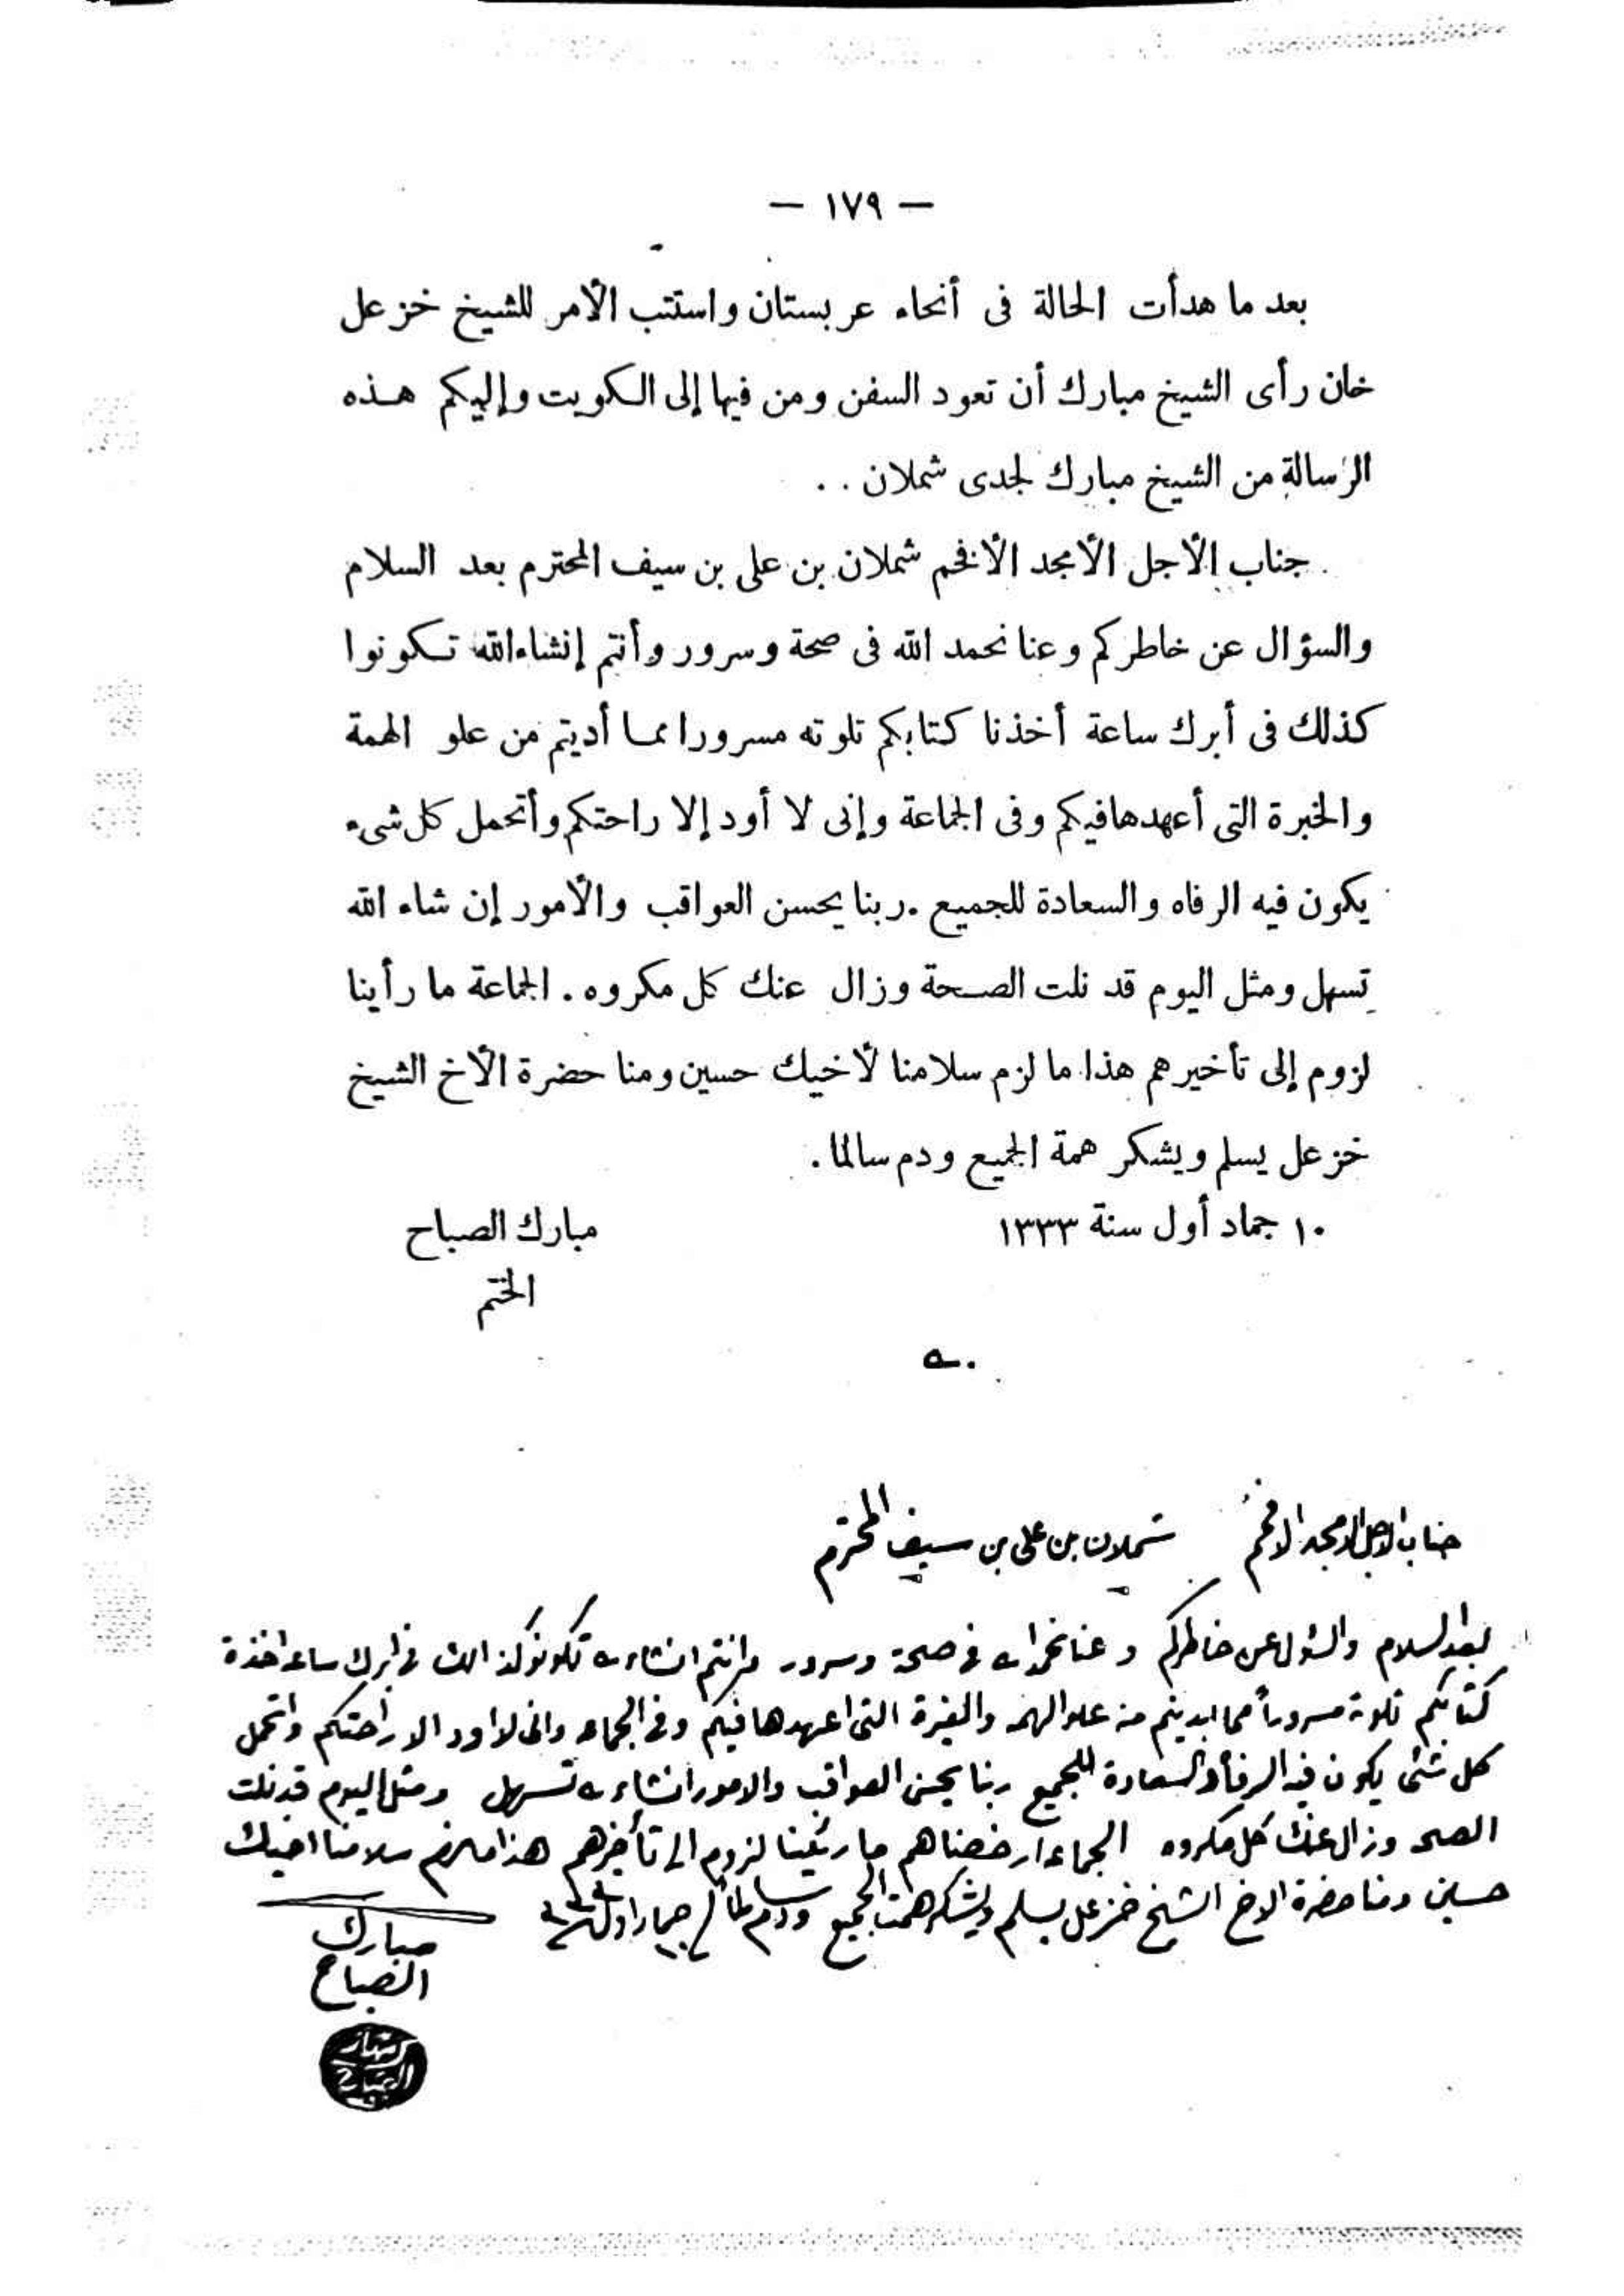 — ١٧٩ —
بعد ما هدأت الحالة فى أنحاء عربستان واستتب الأمر للشيخ خزعل
خان رأى الشيخ مبارك أن تعود السفن ومن فيها إلى الكويت وإليكم هذه
الرسالة من الشيخ مبارك لجدى شملان . .
جناب الأجل الأمجد الأفخم شملان بن على بن سيف المحترم بعد السلام
والسؤال عن خاطركم وعنا نحمد الله فى صحة وسرور وأنتم إنشاءالله تكونوا
كذلك فى أبرك ساعة أخذنا كتابكم تلوته مسرورا مما أديتم من علو الهمة
والخبرة التى أعهدها فيكم وفى الجماعة وإنى لا أود إلا راحتكم وأتحمل كل شىء
يكون فيه الرفاه والسعادة للجميع . ربنا يحسن العواقب والأمور إن شاء الله
تسهل ومثل اليوم قد نلت الصحة وزال عنك كل مكروه . الجماعة ما رأينا
لزوم إلى تأخيرهم هذا ما لزم سلامنا لأخيك حسين ومنا حضرة الأخ الشيخ
خزعل يسلم ويشكر همة الجميع ودم سالما .
١٠ جماد أول سنة ١٣٣٣ مبارك الصباح
الختم
جناب الاجل الامجد الافخم شملان بن على بن سيف المحترم
بعد السلام والسؤل عن خاطركم وعنا نحمد الله فى صحة وسرور وانتم انشاءالله تكونو كذالك فى ابرك ساعه اخذة
كتابكم تلوة مسروراً مما ابديتم من علو الهمه والغيرة التى اعهدها فيكم وفى الجماعه وانى لا اود الا راحتكم واتحمل
كل شئى يكون فيه الرفأه والسعادة للجميع ربنا يحسن العواقب والامور انشاءالله تسهل ومثل اليوم قد نلت
الصحه وزال عنك كل مكروه الجماعه ارخصناهم ما رئينا لزوم الى تأخيرهم هذا مالزم سلامنا اخيك
حسين ومنا حضرة الاخ الشيخ خزعل يسلم ويشكر همت الجميع ودم سالماً جماد اول
مبارك
الصباح